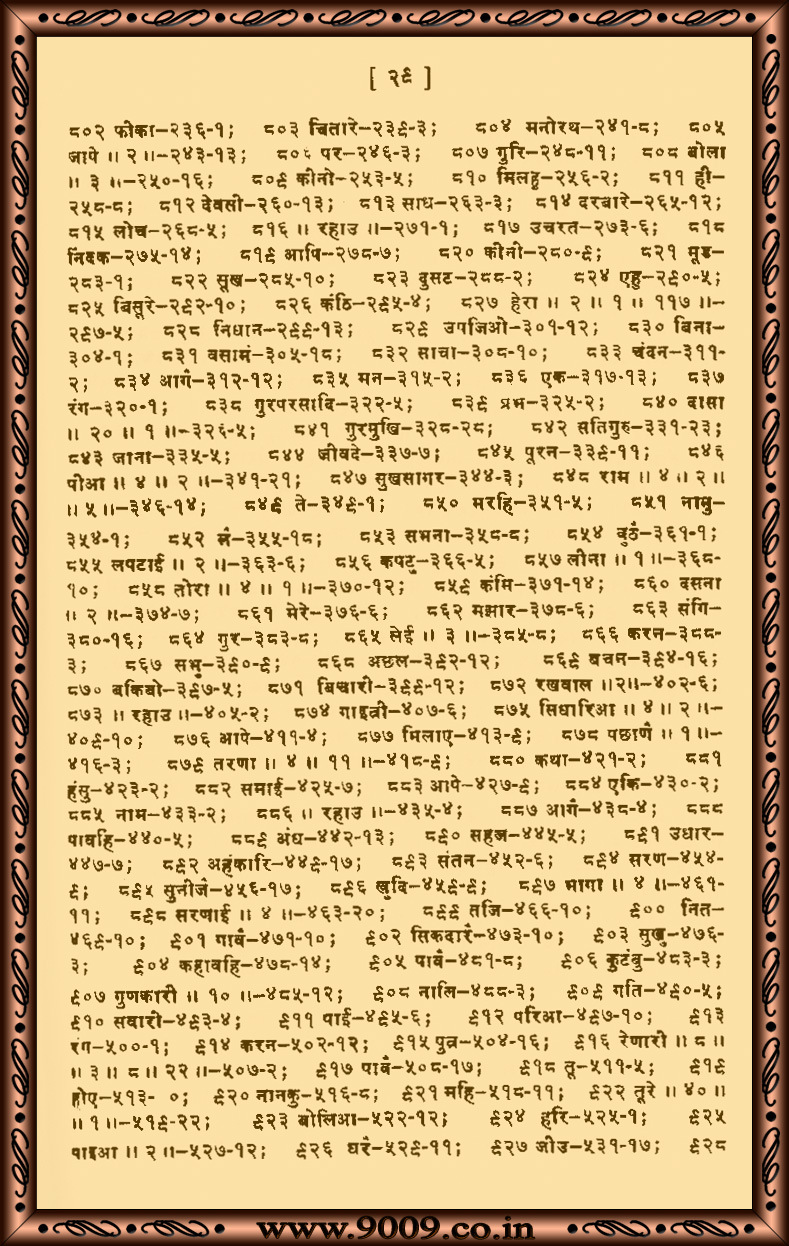 [ २९ ]
८०२ फीका–२३६-१; ८०३ चितारे–२३९-३; ८०४ मनोरथ–२४१-८; ८०५
जापे ॥ २ ॥–२४३-१३; ८०६ पर–२४६-३; ८०७ गुरि–२४८-११; ८०८ बोला
॥ ३ ॥–२५०-१६; ८०९ कीनो–२५३-५; ८१० मिलहु–२५६-२; ८११ ही–
२५८-८; ८१२ देवसी–२६०-१३; ८१३ साध–२६३-३; ८१४ दरबारे–२६५-१२;
८१५ लोच–२६८-५; ८१६ ॥ रहाउ ॥–२७१-१; ८१७ उचरत–२७३-६; ८१८
निंदक–२७५-१४; ८१९ आपि–२७८-७; ८२० कीनी–२८०-९; ८२१ मूड–
२८३-१; ८२२ सूख–२८५-१०; ८२३ दुसट–२८८-२; ८२४ एहु–२९०-५;
८२५ बिसूरे–२९२-१०; ८२६ कंठि–२९५-४; ८२७ हेरा ॥ २ ॥ १ ॥ ११७ ॥–
२९७-५; ८२८ निधान–२९९-१३; ८२९ उपजिओ–३०१-१२; ८३० बिना–
३०४-१; ८३१ वसामं–३०५-१८; ८३२ साचा–३०८-१०; ८३३ चंदन–३११-
२; ८३४ आगै–३१२-१२; ८३५ मन–३१५-२; ८३६ एक–३१७-१३; ८३७
रंग–३२०-१; ८३८ गुरपरसादि–३२२-५; ८३९ प्रभ–३२५-२; ८४० दासा
॥ २० ॥ १ ॥–३२६-५; ८४१ गुरमुखि–३२८-२८; ८४२ सतिगुरु–३३१-२३;
८४३ जाना–३३५-५; ८४४ जीवदे–३३७-७; ८४५ पूरन–३३९-११; ८४६
पीआ ॥ ४ ॥ २ ॥–३४१-२१; ८४७ सुखसागर–३४४-३; ८४८ राम ॥ ४ ॥ २ ॥
॥ ५ ॥–३४६-१४; ८४९ ते–३४९-१; ८५० मरहि–३५१-५; ८५१ नामु–
३५४-१; ८५२ नै–३५५-१८; ८५३ सभना–३५८-८; ८५४ वुठै–३६१-१;
८५५ लपटाई ॥ २ ॥–३६३-६; ८५६ कपटु–३६६-५; ८५७ लीना ॥ १ ॥–३६८-
१०; ८५८ तोरा ॥ ४ ॥ १ ॥–३७०-१२; ८५९ कंमि–३७१-१४; ८६० दसना
॥ २ ॥–३७४-७; ८६१ मेरे–३७६-६; ८६२ मझार–३७८-६; ८६३ संगि–
३८०-१६; ८६४ गुर–३८३-८; ८६५ लेई ॥ ३ ॥–३८५-८; ८६६ करन–३८८-
३; ८६७ सभु–३९०-९; ८६८ अछल–३९२-१२; ८६९ बचन–३९४-१६;
८७० बकिबो–३९७-५; ८७१ बिचारी–३९९-१२; ८७२ रखवाल ॥२॥–४०२-६;
८७३ ॥ रहाउ ॥–४०५-२; ८७४ गाइत्री–४०७-६; ८७५ सिधारिआ ॥ ४ ॥ २ ॥–
४०९-१०; ८७६ आपे–४११-४; ८७७ मिलाए–४१३-९; ८७८ पछाणै ॥ १ ॥–
४१६-३; ८७९ तरणा ॥ ४ ॥ ११ ॥–४१८-९; ८८० कथा–४२१-२; ८८१
हंसु–४२३-२; ८८२ समाई–४२५-७; ८८३ आपे–४२७-९; ८८४ एकि–४३०-२;
८८५ नाम–४३३-२; ८८६ ॥ रहाउ ॥–४३५-४; ८८७ आगै–४३८-४; ८८८
पावहि–४४०-५; ८८९ अंध–४४२-१३; ८९० सहज–४४५-५; ८९१ उधार–
४४७-७; ८९२ अहंकारि–४४९-१७; ८९३ संतन–४५२-६; ८९४ सरण–४५४-
९; ८९५ सुनीजै–४५६-१७; ८९६ खुदि–४५९-९; ८९७ भागा ॥ ४ ॥–४६१-
११; ८९८ सरणाई ॥ ४ ॥–४६३-२०; ८९९ तजि–४६६-१०; ९०० नित–
४६९-१०; ९०१ गावै–४७१-१०; ९०२ सिकदारै–४७३-१०; ९०३ सुखु–४७६-
३; ९०४ कहावहि–४७८-१४; ९०५ पावै–४८१-८; ९०६ कुटंबु–४८३-३;
९०७ गुणकारी ॥ १० ॥–४८५-१२; ९०८ नालि–४८८-३; ९०९ गति–४९०-५;
९१० सवारी–४९३-४; ९११ पाई–४९५-६; ९१२ परिआ–४९७-१०; ९१३
रंग–५००-१; ९१४ करन–५०२-१२; ९१५ पुत्र–५०४-१६; ९१६ रेणारी ॥ ८ ॥
॥ ३ ॥ ८ ॥ २२ ॥–५०७-२; ९१७ पावै–५०८-१७; ९१८ तू–५११-५; ९१९
होए–५१३- ०; ९२० नानकु–५१६-८; ९२१ महि–५१८-११; ९२२ तूरे ॥ ४० ॥
॥ १ ॥–५१९-२२; ९२३ बोलिआ–५२२-१२; ९२४ हरि–५२५-१; ९२५
पाइआ ॥ २ ॥–५२७-१२; ९२६ घरै–५२९-११; ९२७ जीउ–५३१-१७; ९२८
www.9009.co.in